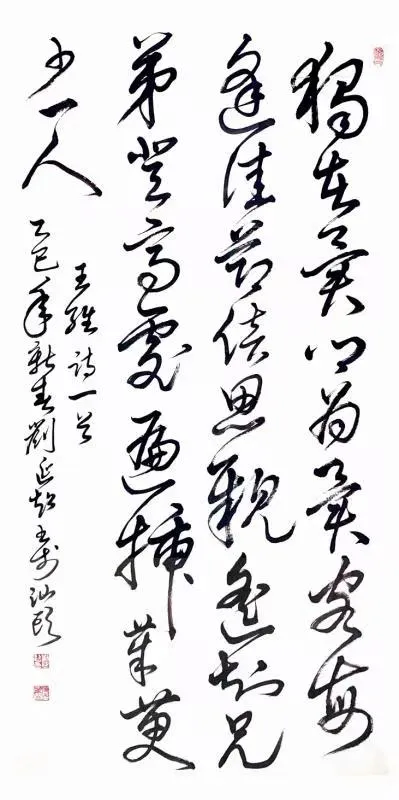 獨在異鄉為異客每
逢佳節倍思親遙知兄
弟登高處遍插茱萸
少一人
王維詩一首
乙巳年新春劉延書於汕頭